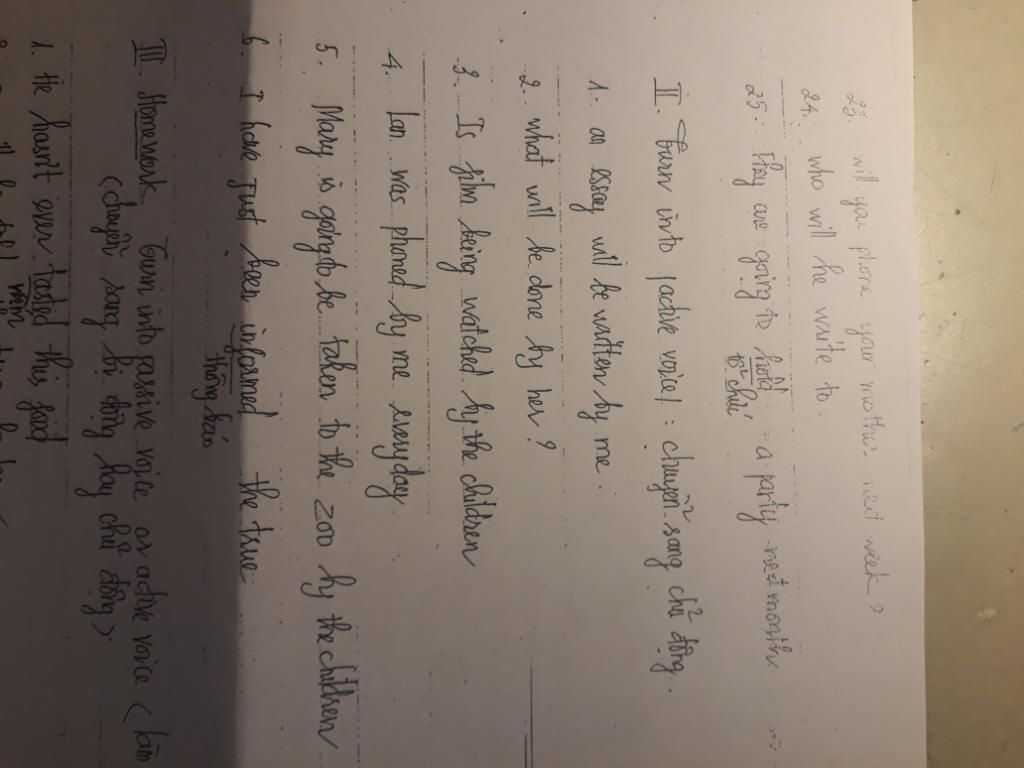 23. will you phone your mother next week?
24. who will he write to.
25. They are going to hold a party next month
tổ chức
II Turn into factive voice1 = chuyển sang chủ động.
1. an essey will be written by me.
2. what will be done by her?
3. Is film being watched by the children
4. Lan was phoned by me everyday.
5. Mary is going to be taken to the zoo by the children
6. I have just been informed the true
thông báo
III. Homework Turn into passive voice or active voice (
(chuyển sang bị động hay chủ động)
1. He hasn't ever tasted this food